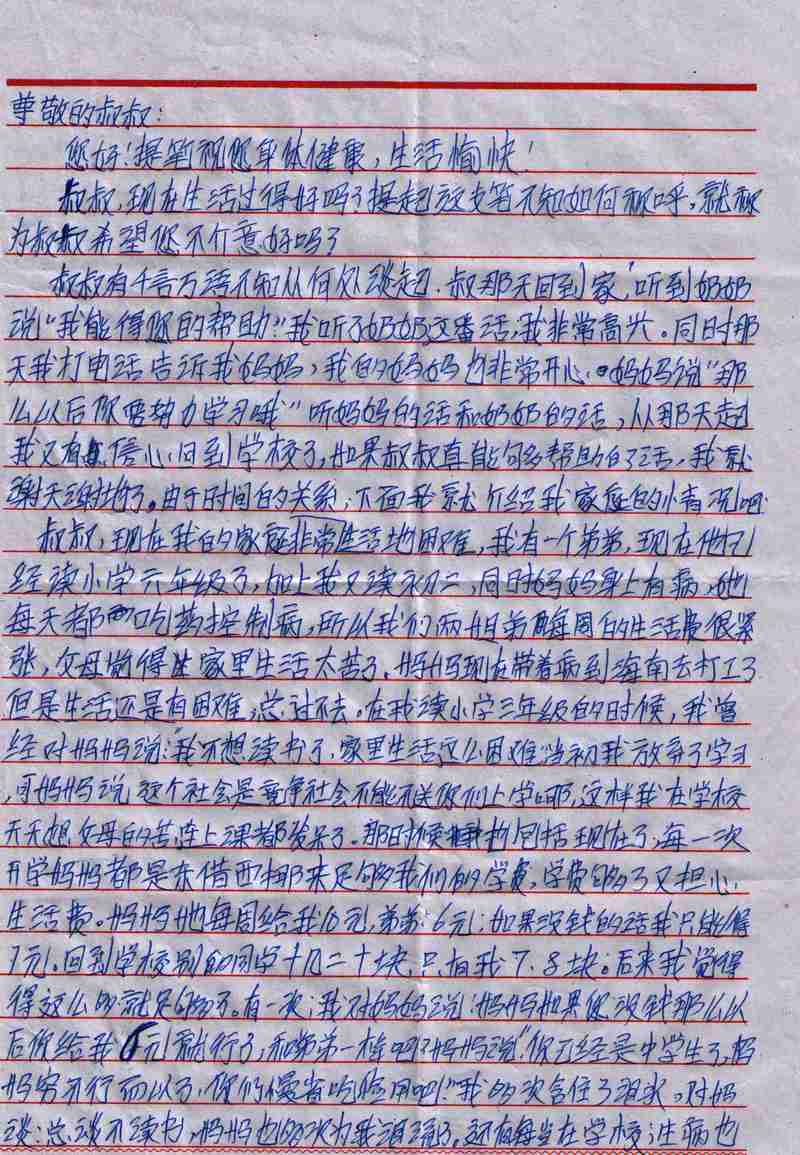 尊敬的叔叔:
您好!提笔祝您身体健康,生活愉快!
叔叔,现在生活过得好吗?提起这支笔不知如何称呼,就称
为叔叔希望您不介意好吗?
叔叔有千言万语不知从何处谈起.叔那天回到家,听到奶奶
说“我能得您的帮助”我听了奶奶这番话,我非常高兴。同时那
天我打电话告诉我妈妈,我的妈妈也非常开心.妈妈说“那
么以后你要努力学习哦”听妈妈的话和奶奶的话,从那天起
我又有信心回到学校了,如果叔叔真能够帮助的话,我就
谢天谢地了。由于时间的关系,下面我就介绍我家庭的小情况吧.
叔叔,现在我的家庭非常生活地困难,我有一个弟弟,现在他已
经读小学六年级了,加上我又读初二,同时妈妈身上有病,她
每天都吃药控制病,所以我们两姐弟每周的生活费很紧
张,父母觉得家里生活太苦了.妈妈现在带着病到海南去打工了
但是生活还是有困难,总过不去。在我读小学三年级的时候,我曾
经对妈妈说:“我不想读书了,家里生活这么困难当初我放弃了学习
,可妈妈说这个社会是竞争社会不能不送你们上学啊,这样我在学校
天天想父母的苦,连上课都发呆了。那时候也包括现在了,每一次
开学妈妈都是东借西挪来足够我们的学费,学费够了又担心
生活费。妈妈她每周给我10元,弟弟:6元;如果没钱的话我只能得
7元.回到学校别的同学十几二十块,只有我7、8块。后来我觉得
得这么的就足够了。有一次,我对妈妈说:妈妈如果您没钱那么以
后你给我6元就行了,和弟弟一样吧?妈妈说“你已经是中学生了,
妈穷不行而以了,你们慢省吃俭用吧!”我的次含住了泪水。对妈
谈:总谈不读书,妈妈也的次为我泪流了,还有每当在学校生病也